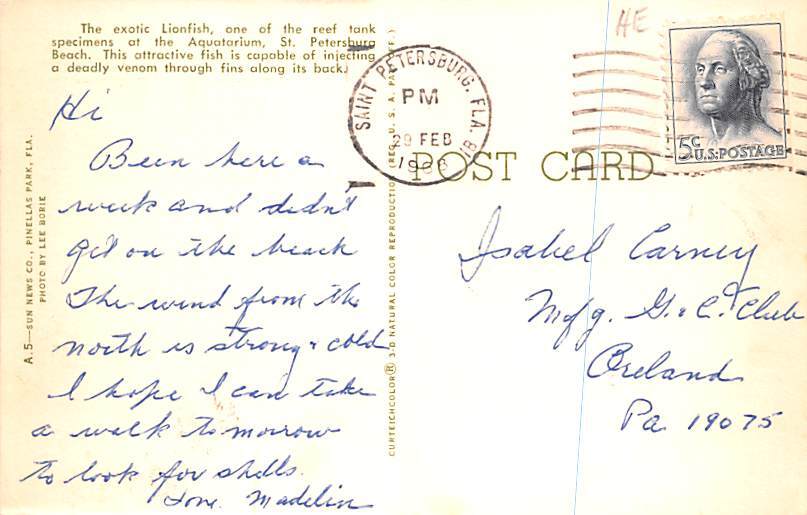 The exotic Lionfish, one of the reef tank
specimens at the Aquatorium, St. Petersburg
Beach. This attractive fish is capable of injecting
a deadly venom through fins along its back.
Hi
Been here a
week and didn't
get on the beach
The wind from the
north is strong & cold
I hope I can take
a walk tomorrow
to look for shells.
Love. Madelin
A.5—SUN NEWS CO., PINELLAS PARK, FLA.
PHOTO BY LEE BORIE
CURTEICHCOLOR® 3-D NATURAL COLOR REPRODUCTION (REG. U.S.A. PAT. OFF.)
SAINT PETERSBURG, FLA.
PM
FEB
POST CARD
HE
5¢
U.S. POSTAGE
Isabel Carney
Mfg. G. & C. Club
Oreland
Pa 19075